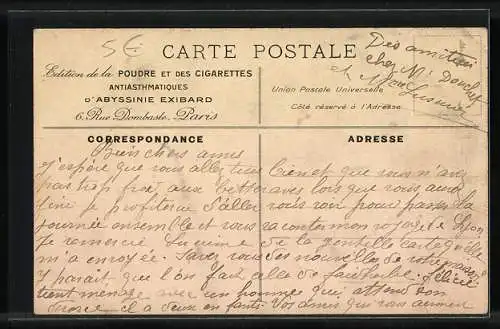 5€
CARTE POSTALE
Des amitiés
chez Mr
et
Edition de la POUDRE ET DES CIGARETTES
ANTIASTHMATIQUES
D'ABYSSINIE EXIBARD
6, Rue Dombasle, Paris
Union Postale Universelle
Côté réservé à l'Adresse
CORRESPONDANCE
ADRESSE
Biens chers amis
J'espère que vous allez tous bien et que vous n'avez
pas trop froid aux betteraves lors que vous aurez
fini je profiterai d'aller vous voir pour passer la
journée ensemble et vous raconter mon voyage de Lyon
Je remercie de la gentille carte qu'elle
m'a envoyée. Savez vous des nouvelles de votre
Y parait que l'on fait celle de
tient menage avec un hommes qui attend son
il a deux enfants. Vos amis qui vous aiment